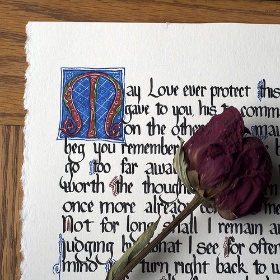 May Love ever protect this
gave to you his comma
on the othe
beg you remember
go too far awa
worth the though
once more alread
Not for long shall I remain a
judging by what I see for often
mind turn right back to